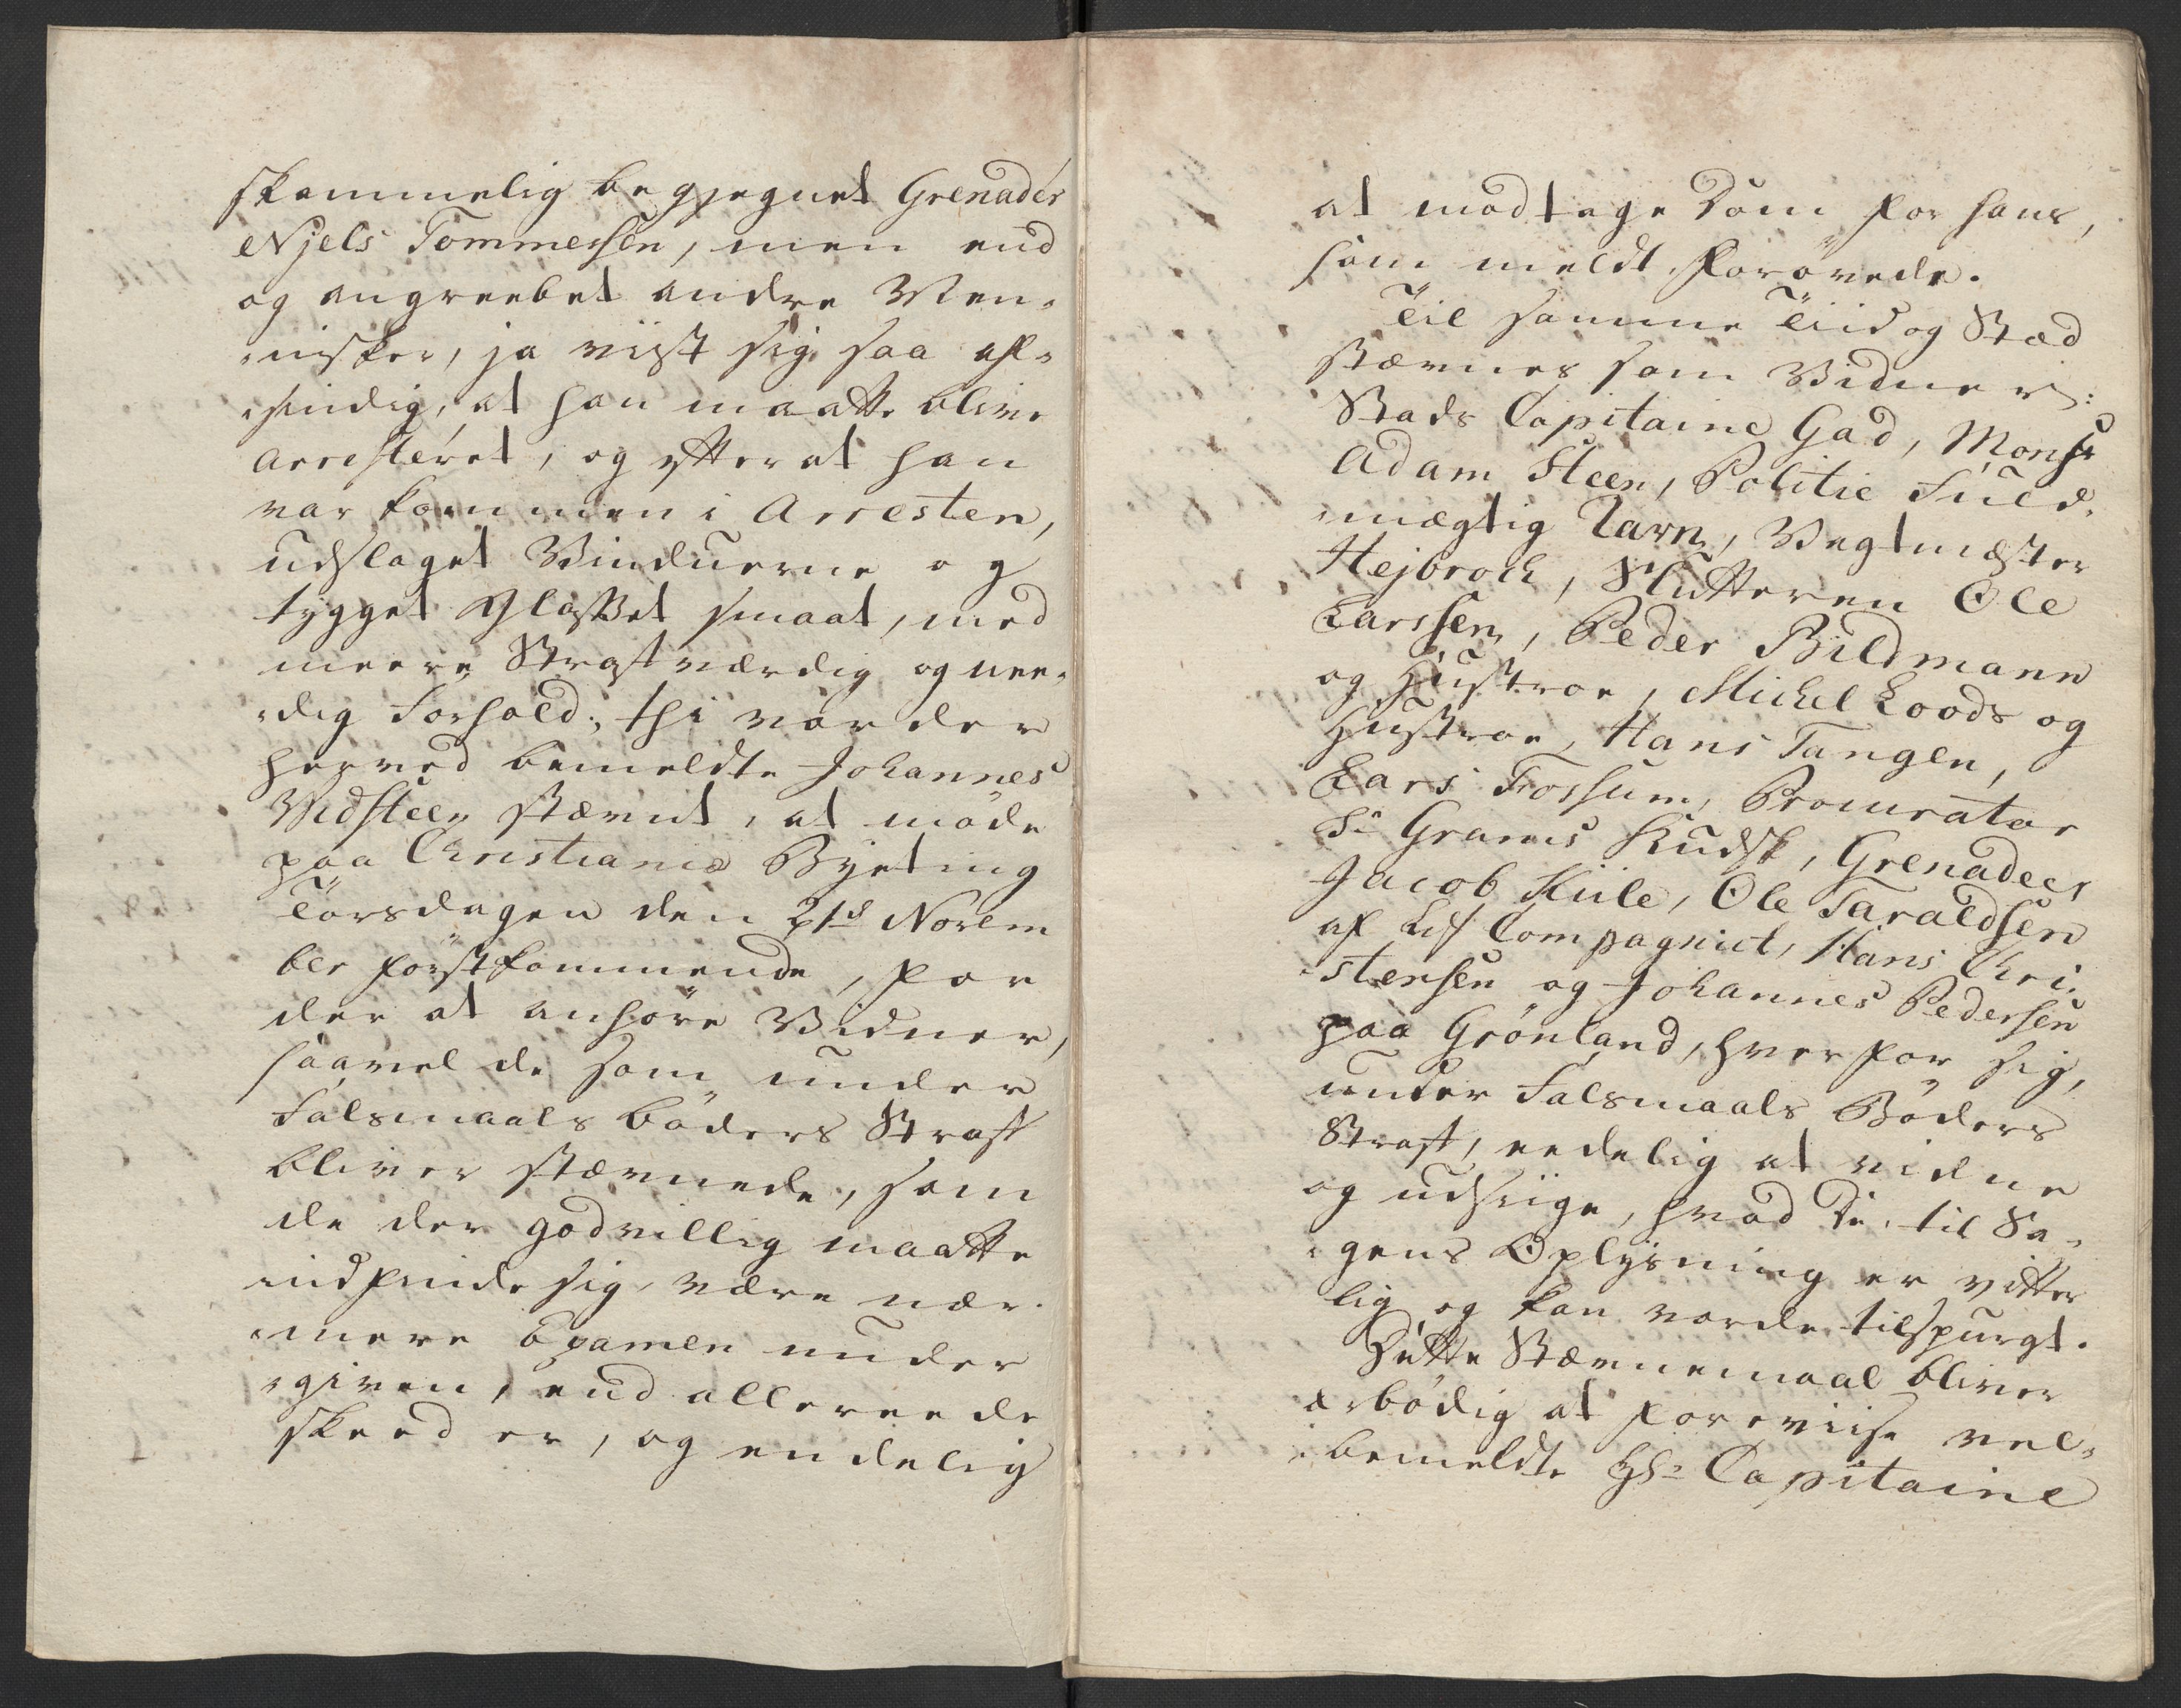 skammelig begjegnet Grenadér
Njels Tommessen, men end
og angreebet andre Men-
-nisker, ja viist sig saa af-
-sindig, at han maatte blive
arresteret, og efter at han
var kommen i Arresten,
udslaget Vinduerne og
tygget Glasset smaat, med
meere Strafværdig og uor-
-dig Forhold; thi vorder
herved bemeldte Johannes
Vidsteen stævnt, at møde
paa Christianiæ Byeting
Torsdagen den 21de Novem
ber førstkommende, for
der at anhøre Vidner,
saavel de som under
Falsmaals bøders Straf
bliver stævnede, som
de der godvillig maatte
indfinde sig, være nær-
-mere Examen under
-given, end allereede
skeed er, og endelig
at modtage Dom for hans,
som meldt, forøvede.
Til samme Tiid og Stæd
stævnes som Vidner:
Stads Capitaine Gad, Monsr
Adam Steen, Politie Fuld-
-mægtig Tarn, Vagtmæster
Hejbroch, Slutteren Ole
Larssen, Peder Bildmann
og Hustroe, Michel Loods og
Hustroe, Hans Tangen,
Lars Fossum, Procurator
Sr Grams Kudsk, Grenadeer
Jacob Kiile, Ole Taraldsen
af Lif Compagniet, Hans Chri-
-stensen og Johannes Pedersen
paa Grönland, hver for sig,
under Falsmaals Bøders
Straf, eedelig at vidne
og udsiige, hvad De til Sa-
-gens Oplysning er vitter
lig og kan vorde tilspurgt.
Dette Stævnemaal bliver
ærbødig at foreviise vel-
-bemeldte Hr Capitaine